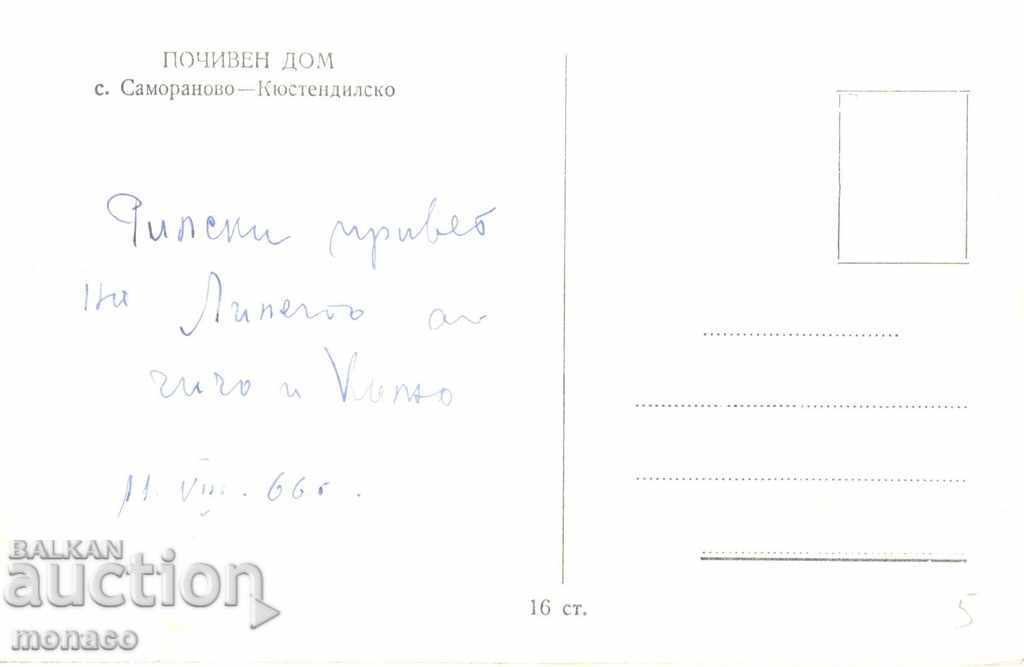 ПОЧИВЕН ДОМ
с. Самораново—Кюстендилско
Рилски привет
на от
чичо и
11. VIII. 66 г.
16 ст.
5
BALKAN
auction
monaco